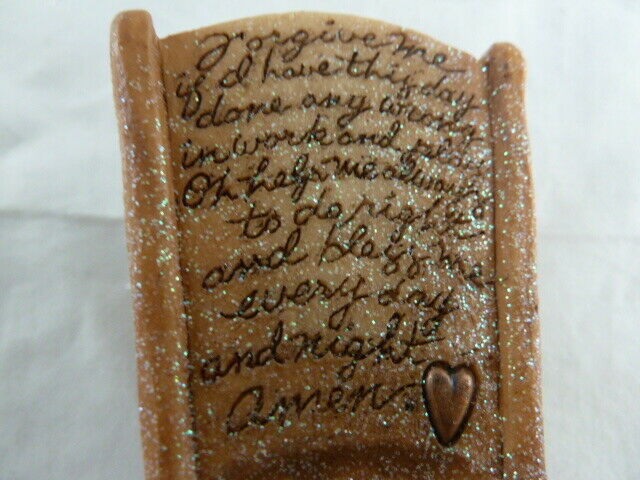 Forgive me
if I have this day
done any wrong
in work and play
Oh help me always
to do right
and bless me
every day
and night
amen.